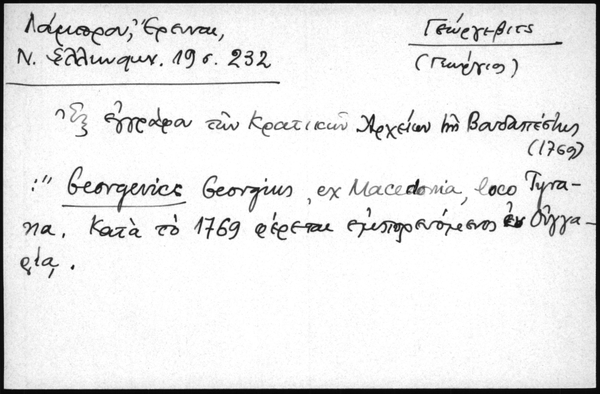 Λάμπρου, Ἔρευναι,
Ν. Ἑλληνομν. 19 σ. 232
Γεώργεβιτς
(Γεώργιος)
Ἐξ ἐγγράφου τῶν Κρατικῶν Ἀρχείων τῆς Βουδαπέστης
(1769)
:" Georgevics Georgius, ex Macedonia, loco Tyrna-
na. Κατὰ τὸ 1769 φέρεται ἐμπορευόμενος ἐν Οὑγγα-
ρίᾳ.